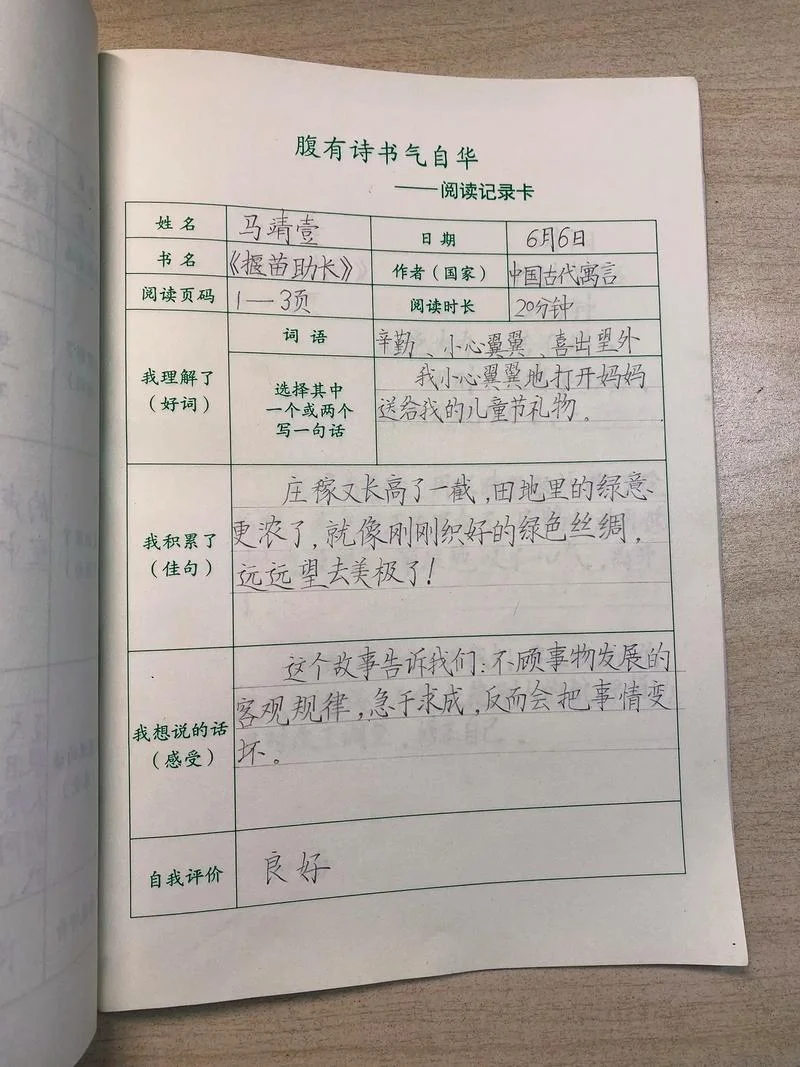 腹有诗书气自华
——阅读记录卡
姓名 马靖壹 日期 6月6日
书名 《揠苗助长》 作者(国家) 中国古代寓言
阅读页码 1—3页 阅读时长 20分钟
我理解了
(好词)
词语 辛勤、小心翼翼、喜出望外
选择其中
一个或两个
写一句话
我小心翼翼地打开妈妈
送给我的儿童节礼物。
我积累了
(佳句)
庄稼又长高了一截,田地里的绿意
更浓了,就像刚刚织好的绿色丝绸,
远远望去美极了!
我想说的话
(感受)
这个故事告诉我们:不顾事物发展的
客观规律,急于求成,反而会把事情变
坏。
自我评价 良好